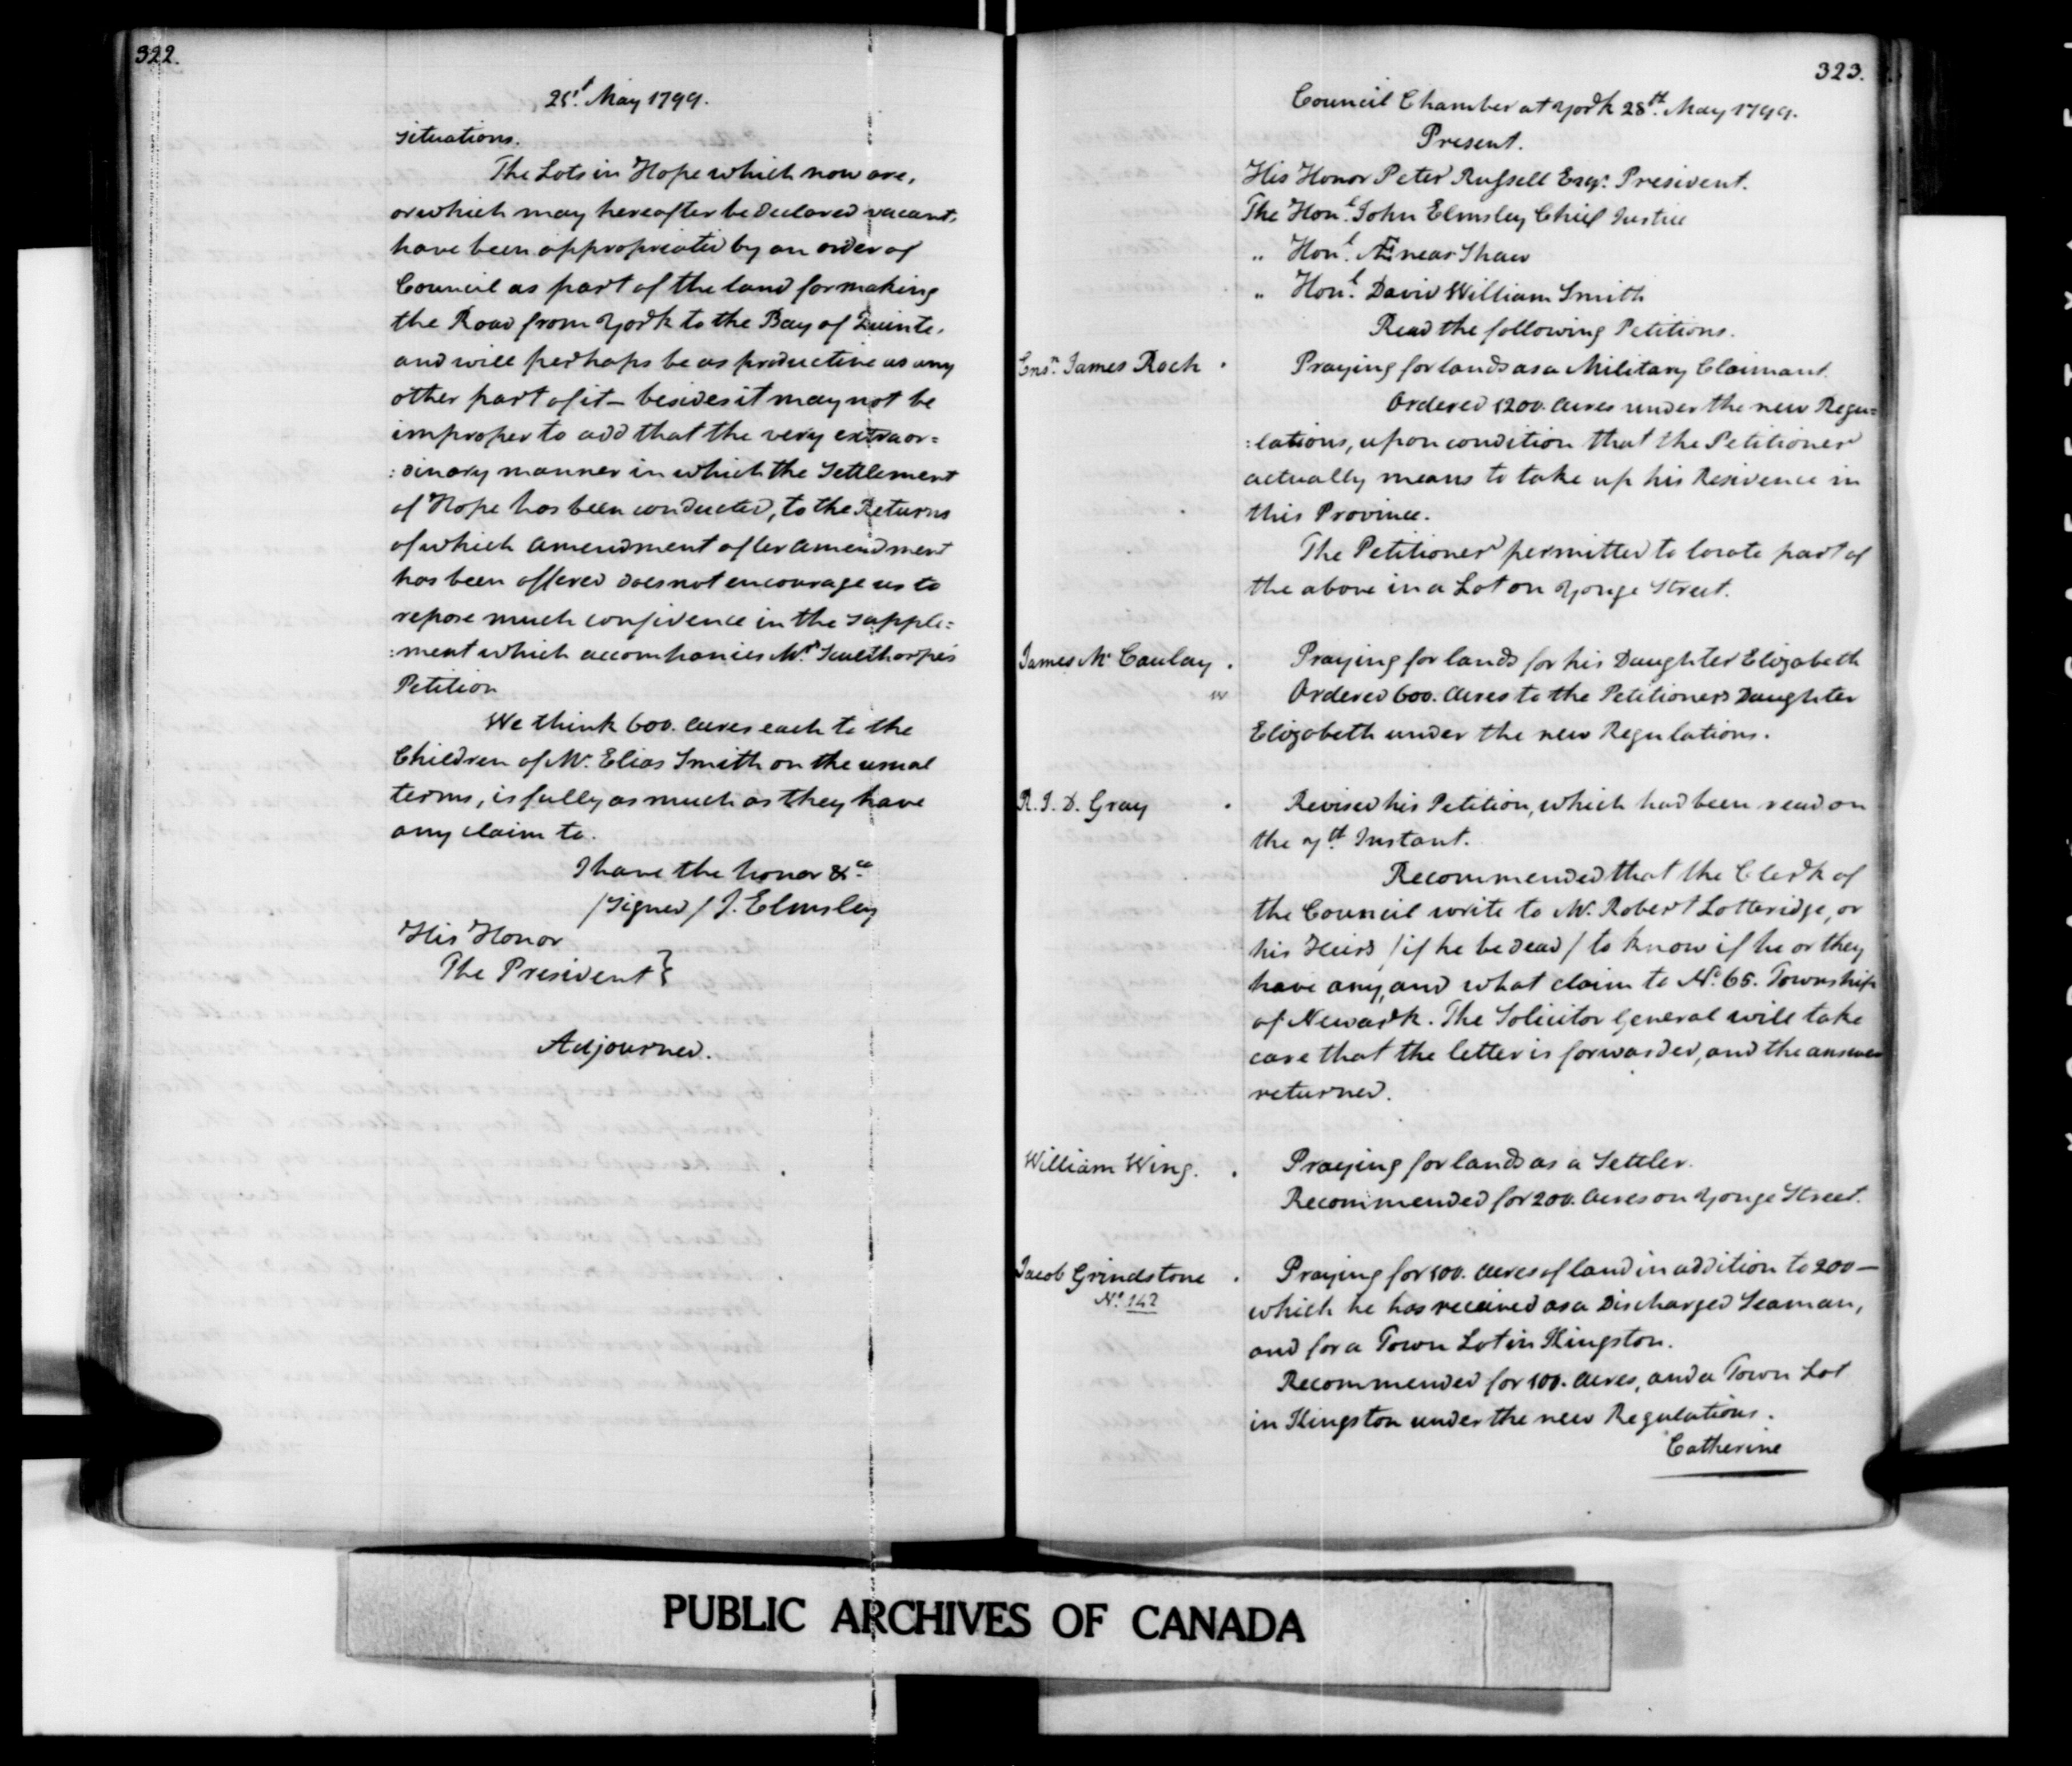 322.
25t. May 1799.
situations.
The Lots in Hope which now are,
or which may hereafter be declared vacant,
have been appropriated by an order of
Council as part of the land for making
the Road from York to the Bay of Quinte.
and will perhaps be as productive as any
other part of it — besides it may not be
improper to add that the very extraor=
:dinary manner in which the Settlement
of Hope has been conducted, to the Returns
of which amendment after amendment
has been offered does not encourage us to
repose much confidence in the supple:
:ment which accompanies Mr. Smethorpe's
Petition
We think 600. acres each to the
Children of Mr. Elias Smith on the usual
terms, is fully as much as they have
any claim to.
I have the honor &ca
/signed/ J. Elmsley
His Honor
The President }
Adjourned.
323.
Council Chamber at York 28th. May 1799.
Present.
His Honor Peter Russell Esqr. President.
The Honl. John Elmsley Chief Justice
" Honl. Æneas Shaw
" Honl. David William Smith
Read the following Petitions.
Ensn. James Rock . Praying for lands as a Military Claimant.
Ordered 1200. acres under the new Regu=
:lations, upon condition that the Petitioner
actually means to take up his Residence in
this Province.
The Petitioner permitted to locate part of
the above in a Lot on Yonge Street.
James McCaulay . Praying for lands for his Daughter Elizabeth
Ordered 600. acres to the Petitioners Daughter
Elizabeth under the new Regulations.
R. I. D. Gray . Revised his Petition, which had been read on
the 7th. Instant.
Recommended that the Clerk of
the Council write to Mr. Robert Lotteridge, or
his Heirs /if he be dead/ to know if he or they
have any, and what claim to No. 65. Township
of Newark. The Solicitor General will take
care that the letter is forwarded, and the answer
returned.
William Wing. . Praying for lands as a Settler.
Recommended for 200. acres on Yonge Street.
Jacob Grindstone . Praying for 100. acres of land in addition to 200 —
No. 142
which he has received as a Discharged Seaman,
and for a Town Lot in Kingston.
Recommended for 100. acres, and a Town Lot
in Kingston under the new Regulations.
Catherine
PUBLIC ARCHIVES OF CANADA